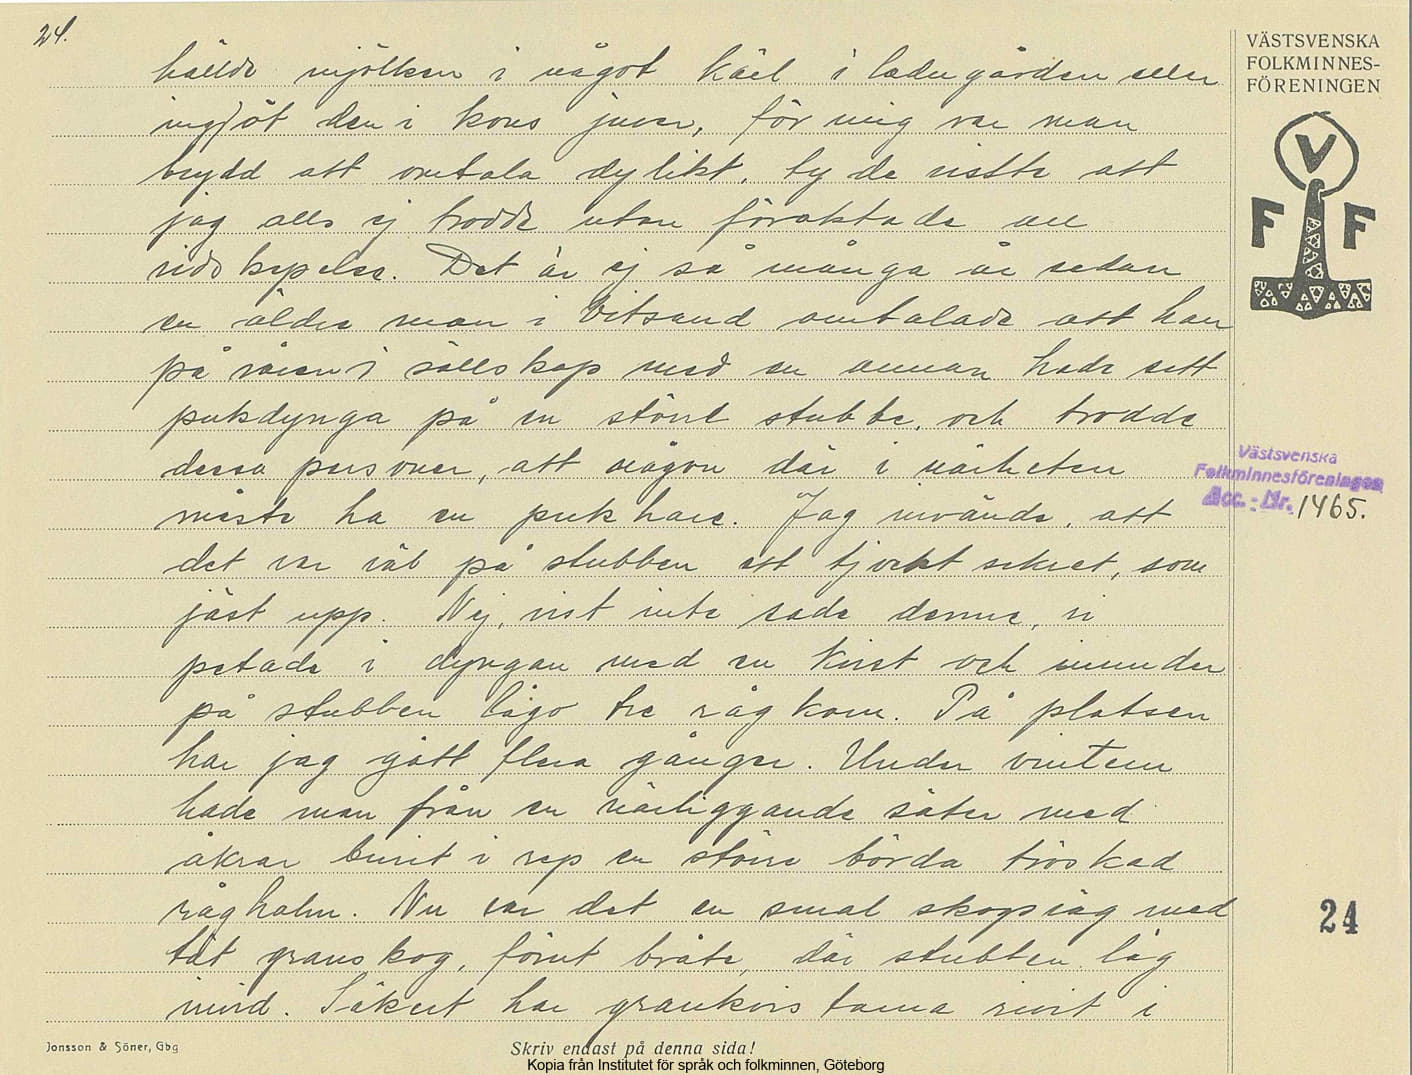 24.
VÄSTSVENSKA
FOLKMINNES-
FÖRENINGEN
V
F F
hällde mjölken i något kärl i ladugården eller
ingjöt den i kons juver, för mig var man
brydd att omtala dylikt, ty de visste att
jag alls ej trodde utan föraktade all
vidskepelse. Det är ej så många år sedan
en äldre man i Vitsand omtalade att han
på våren i sällskap med en annan hade sett
pukdynga på en större stubbe, och trodde
dessa personer, att någon där i närheten
måste ha en puk hare. Jag invände, att
det var väl på stubben ett tjockt sekret, som
jäst upp. Nej, vist inte sade denne, vi
petade i dyngan med en kvist och inunder
på stubben lågo tre rågkorn. På platsen
har jag gått flera gånger. Under vintern
hade man från en närliggande säter med
åkrar burit i rep en större börda tröskad
råghalm. Nu var det en smal skogsväg med
tät granskog, förut bråte, där stubben låg
invid. Säkert har grankvistarna rivit i
Västsvenska
Folkminnesföreningen
Acc.-Nr. 1465.
24
Jonsson & Söner, Gbg
Skriv endast på denna sida!
Kopia från Institutet för språk och folkminnen, Göteborg